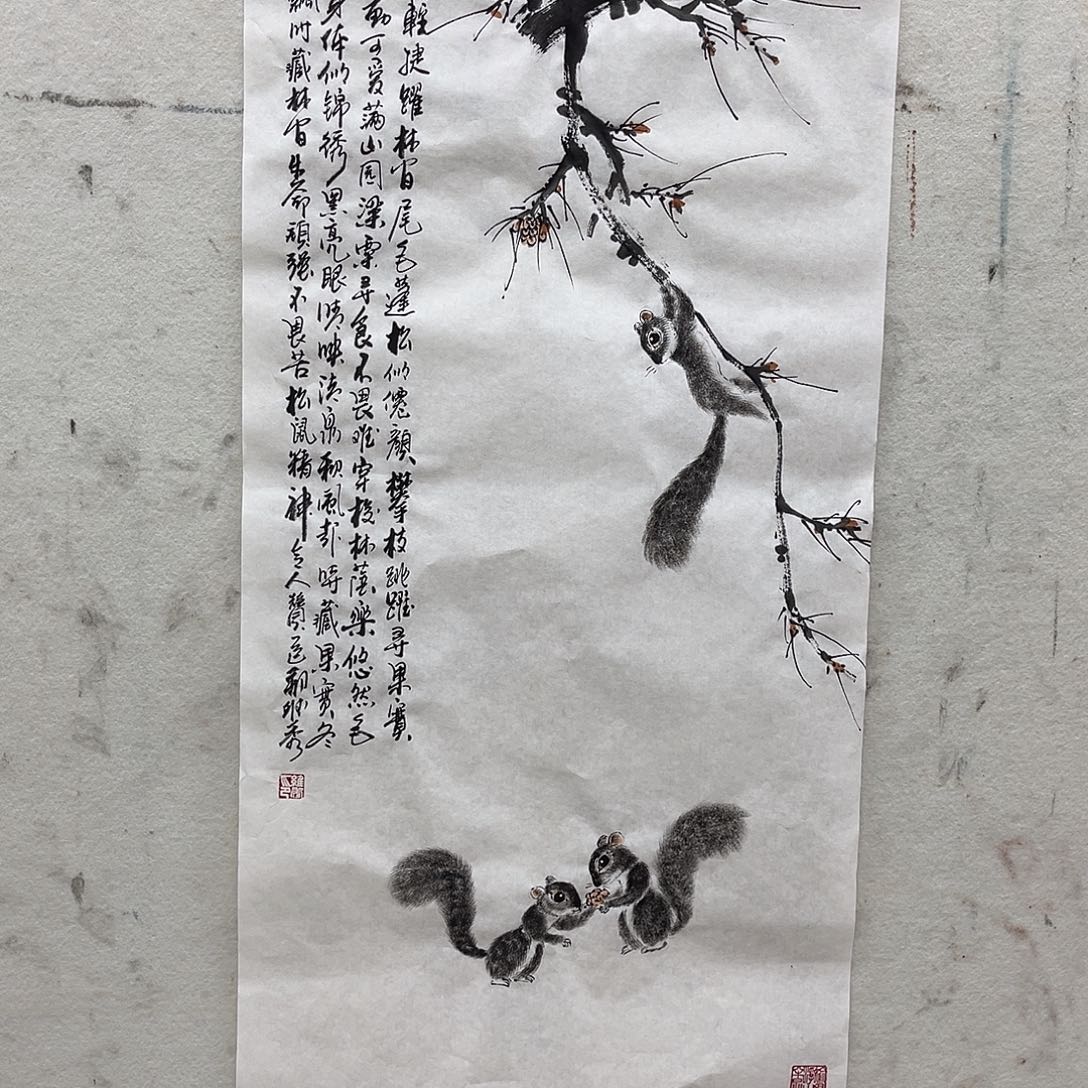 輕捷躍林間尾毛蓬松似仙顏攀枝跳躍尋果實
動可愛滿山園梁栗尋食不畏難穿梭林蔭樂悠然毛
身作似錦綉黑亮眼睛映清泉秋風起時藏果實冬
藏林間生命頑强不畏苦松鼠精神令人贊